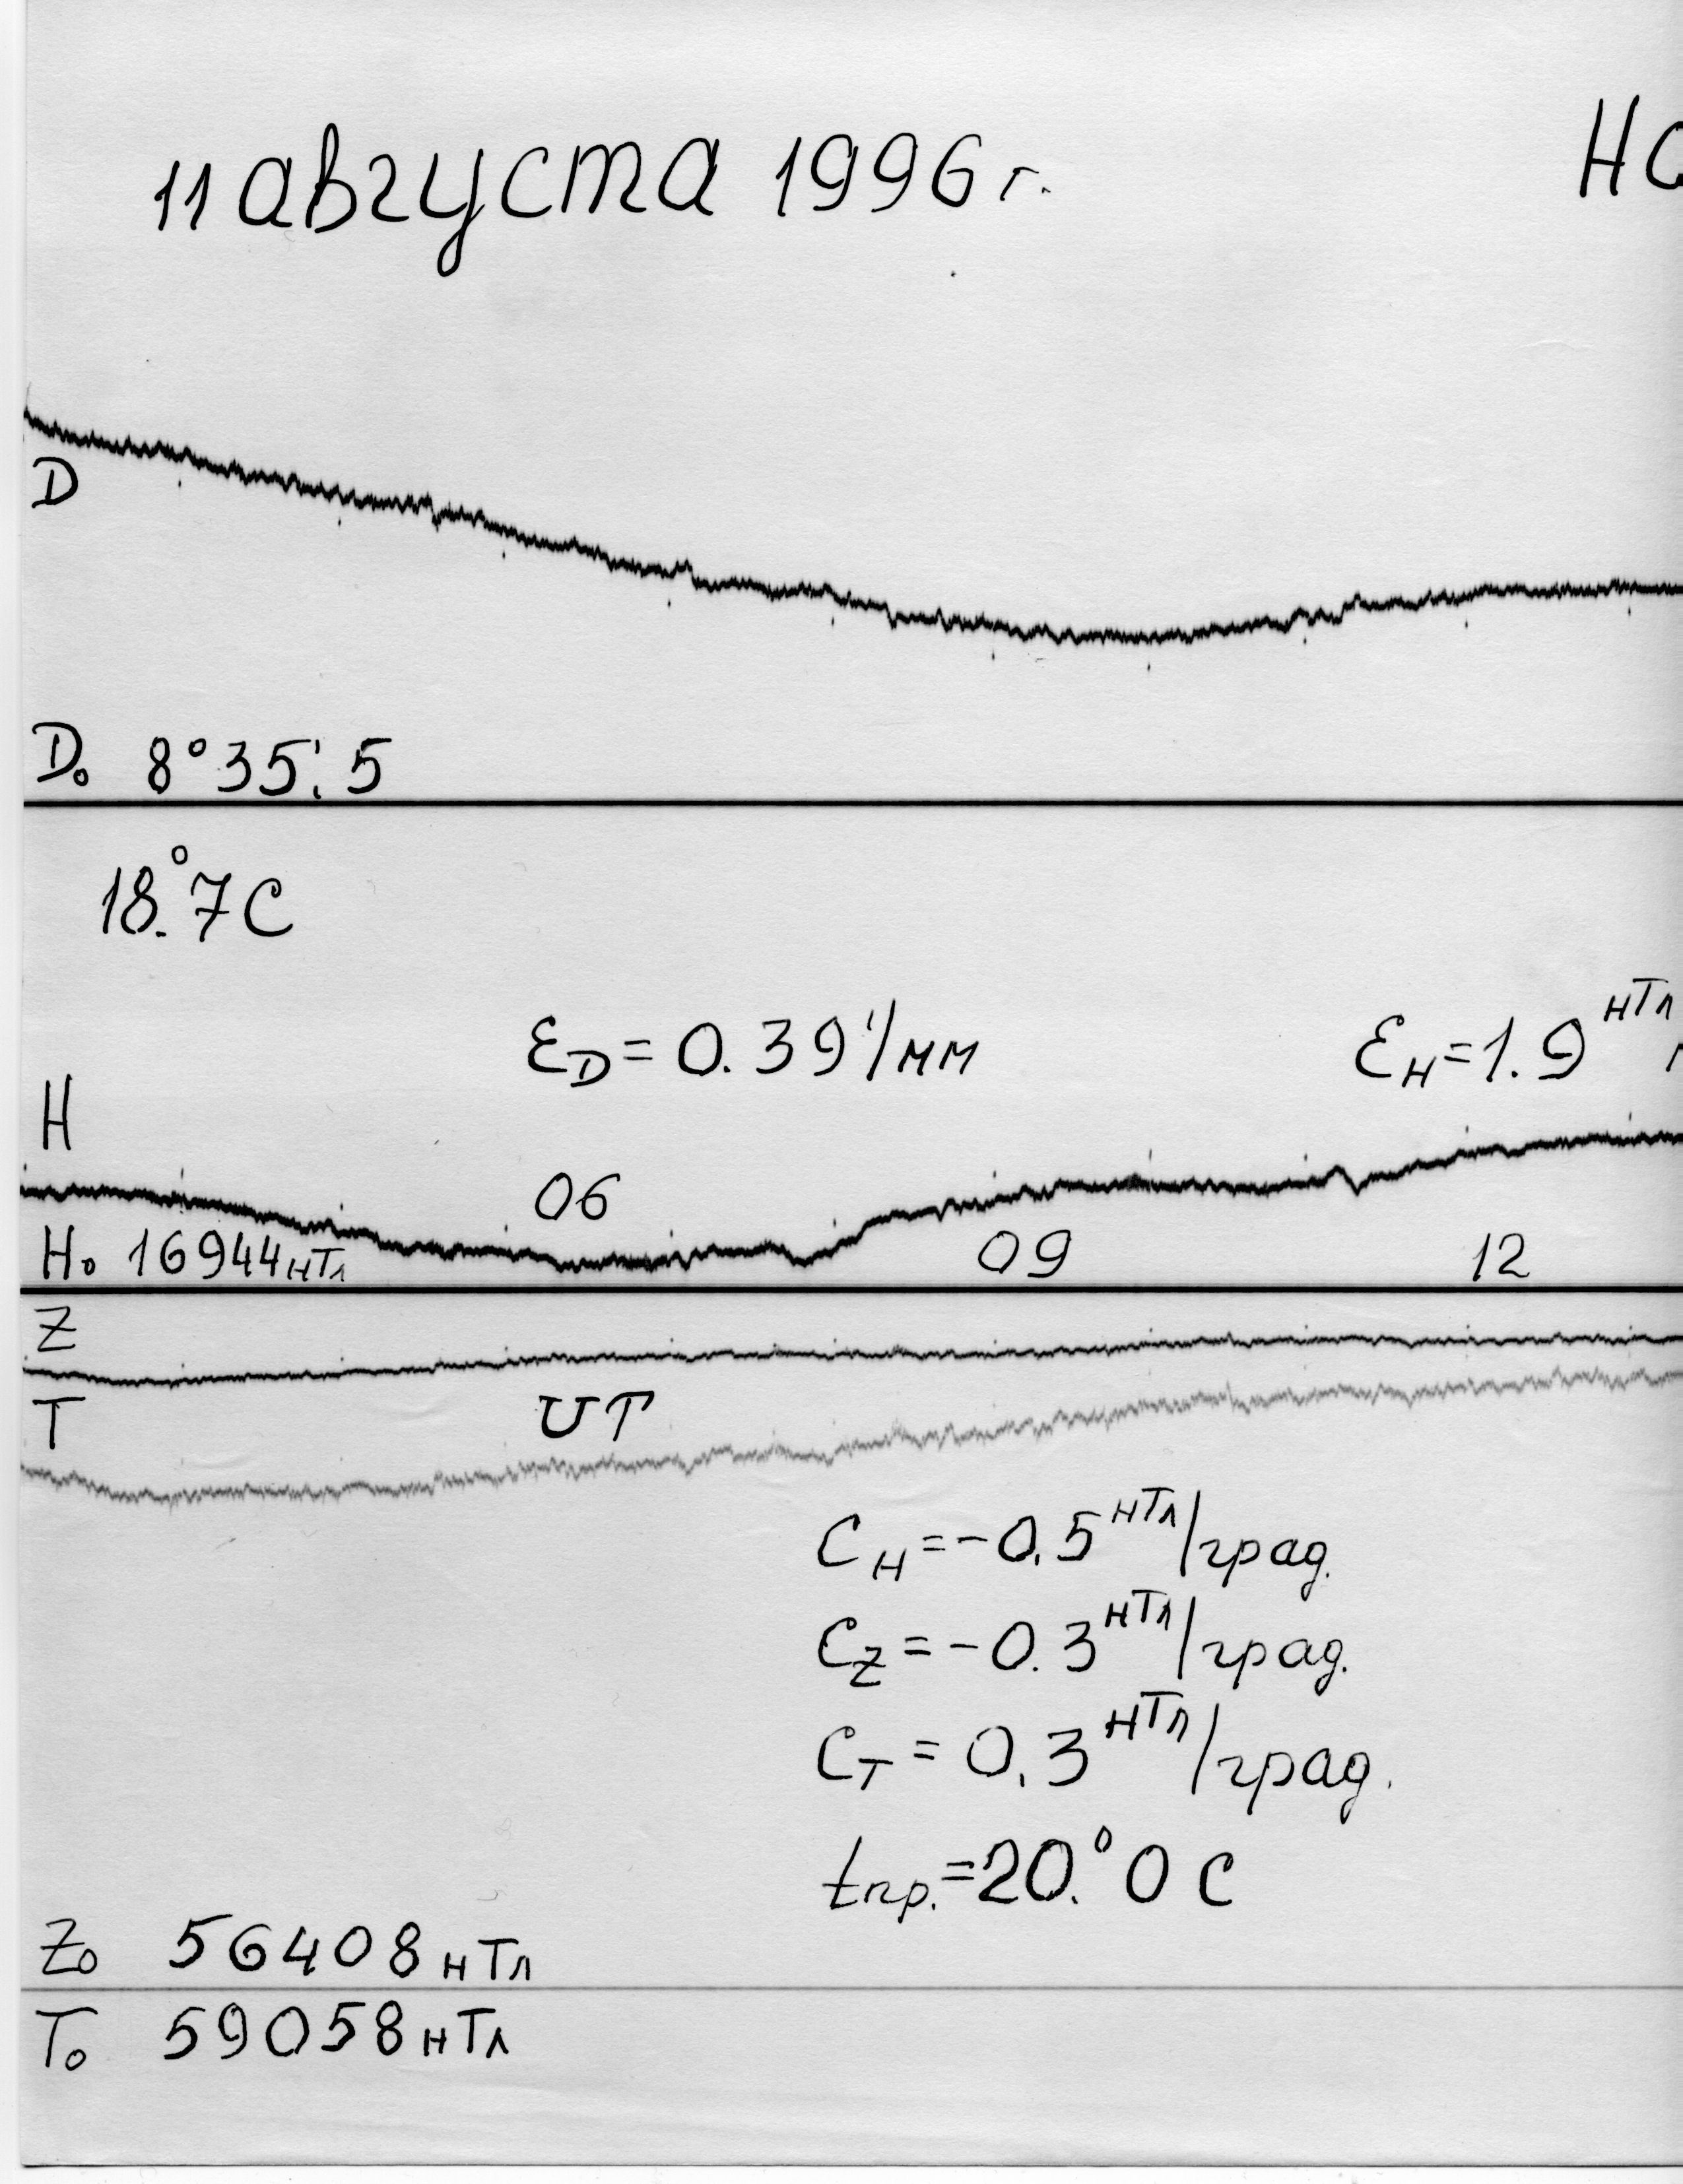 11 августа 1996 г.
D
D₀ 8°35'.5
18.°7C
ε_D = 0.39'/мм
ε_H = 1.9 нТл
H
06
H₀ 16944 нТл
09
12
Z
T
UT
C_H = -0.5 нТл/град.
C_Z = -0.3 нТл/град.
C_T = 0.3 нТл/град.
tпр. = 20.°0 C
Z₀ 56408 нТл
T₀ 59058 нТл